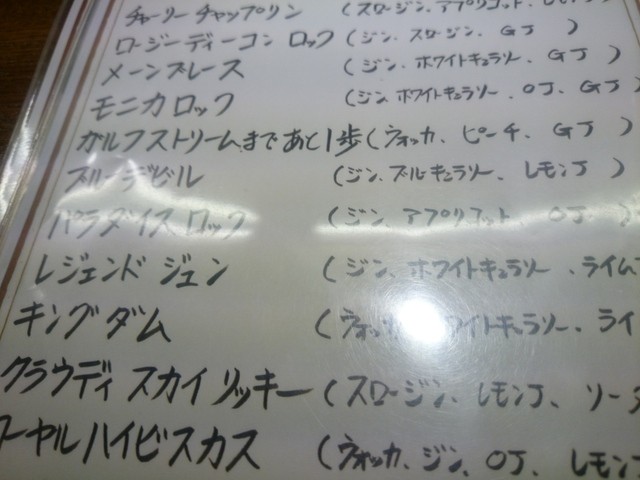 チャーリーチャップリン (スロージン、アプリコット、レモンJ
ロージーディーコン ロック (ジン、スロージン、GJ )
メーンブレース (ジン、ホワイトキュラソー、GJ )
モニカロック (ジン、ホワイトキュラソー、OJ、GJ )
ガルフストリームまであと1歩 (ウォッカ、ピーチ、GJ )
ブルーデビル (ジン、ブルーキュラソー、レモンJ )
パラダイスロック (ジン、アプリコット、OJ、 )
レジェンド ジュン (ジン、ホワイトキュラソー、ライム
キングダム (ウォッカ、ホワイトキュラソー、ライ
クラウディ スカイ リッキー (スロージン、レモンJ、ソーダ
ーヤルハイビスカス (ウォッカ、ジン、OJ、レモンJ